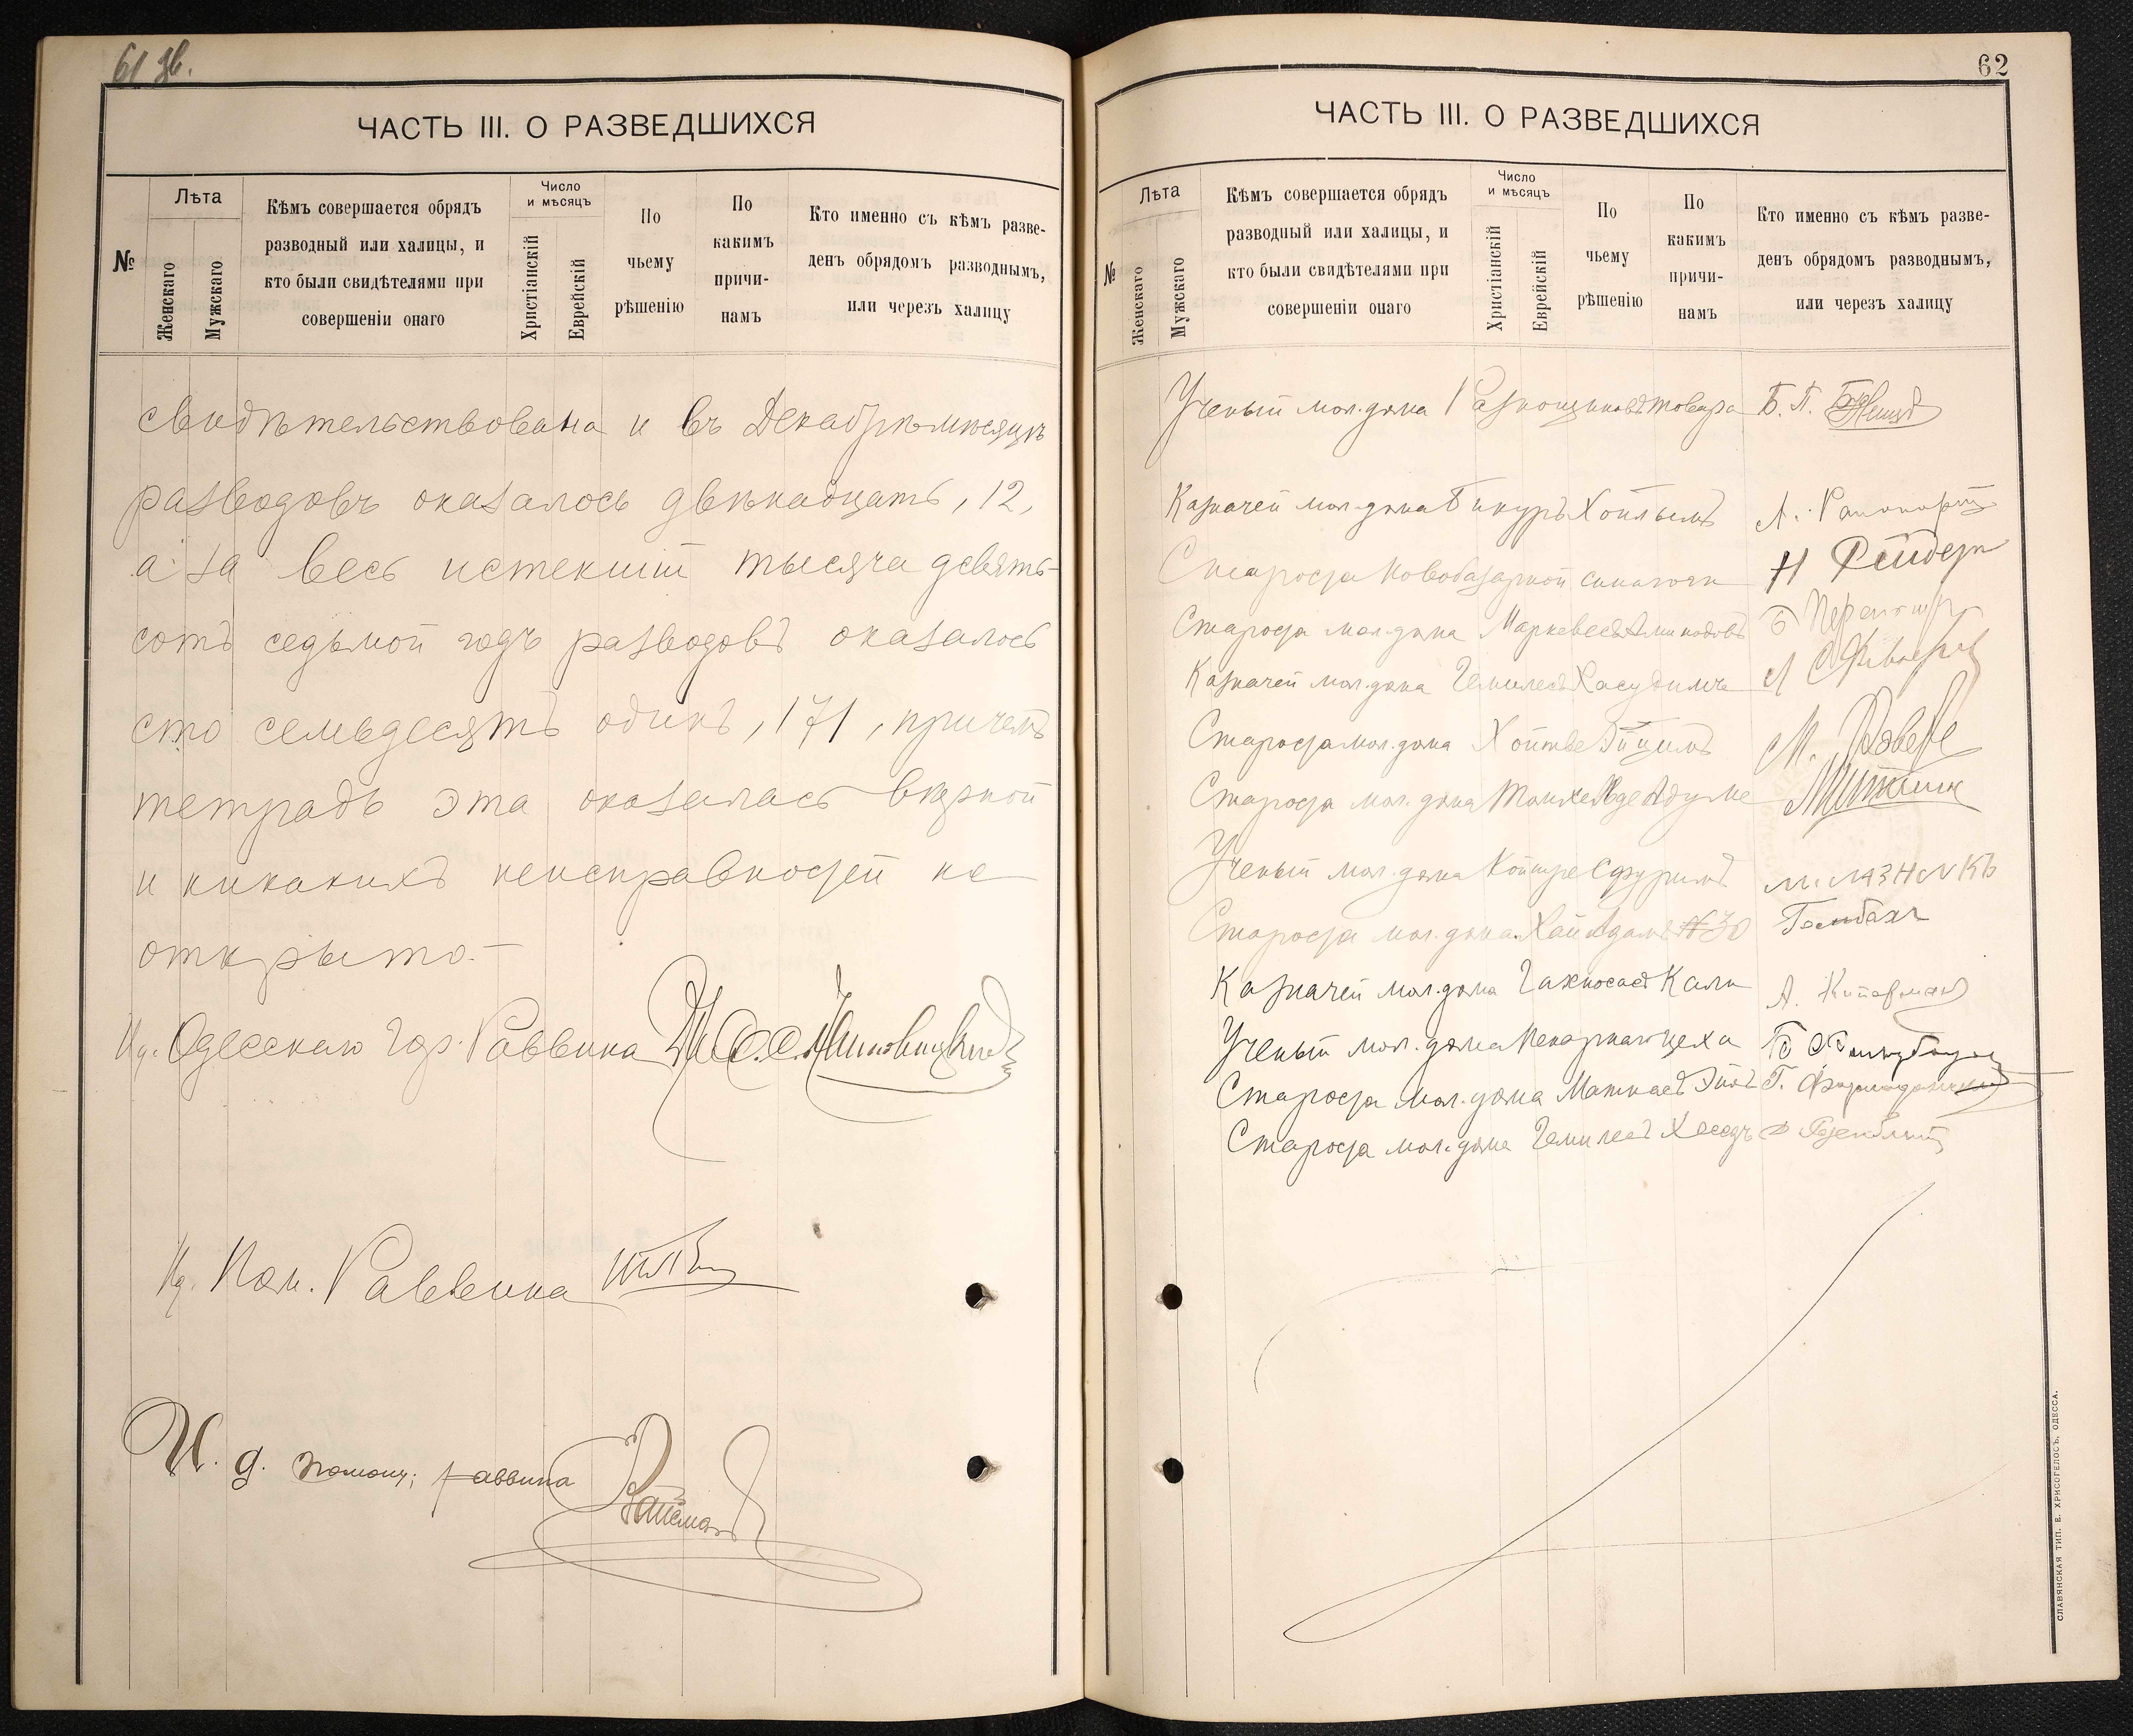 61 зв.
ЧАСТЬ III. О РАЗВЕДШИХСЯ
№
Лѣта
Женскаго
Мужскаго
Кѣмъ совершается обрядъ
разводный или халицы, и
кто были свидѣтелями при
совершеніи онаго
Число
и мѣсяцъ
Христіанскій
Еврейскій
По
чьему
рѣшенію
По
какимъ
причи-
намъ
Кто именно съ кѣмъ разве-
денъ обрядомъ разводнымъ,
или черезъ халицу
свидѣтельствована и въ Декабрѣ мѣсяцѣ
разводовъ оказалось двѣнадцать, 12,
а за весь истекшій тысяча девять-
сотъ седьмой годъ разводовъ оказалось
сто семьдесятъ одинъ, 171, причемъ
тетрадь эта оказалась вѣрной
и никакихъ неисправностей не
открыто.
И д. Одесскаго Гор. Раввина
И д. Пом. Раввина
И. д. помощ. раввина
62
ЧАСТЬ III. О РАЗВЕДШИХСЯ
№
Лѣта
Женскаго
Мужскаго
Кѣмъ совершается обрядъ
разводный или халицы, и
кто были свидѣтелями при
совершеніи онаго
Число
и мѣсяцъ
Христіанскій
Еврейскій
По
чьему
рѣшенію
По
какимъ
причи-
намъ
Кто именно съ кѣмъ разве-
денъ обрядомъ разводнымъ,
или черезъ халицу
Ученый мол. дома Разнощиковъ товара Б. П.
Казначей мол. дома Бикуръ Хойлымъ А. Рапопортъ
Староста Новобазарной синагоги Н Рейдеръ
Староста мол. дома
Казначей мол. дома Гемилесъ Хасудимъ
Староста мол. дома Хойтве Эйцимъ М.
Староста мол. дома
Ученый мол. дома М. МАЗНИКЬ
Староста мол. дома Хай Адамъ № 30
Казначей мол. дома Гахносасъ Кале А.
Ученый мол. дома Пекарнаго цеха
Староста мол. дома Г.
Староста мол. дома Гемилесъ Хеседъ
СЛАВЯНСКАЯ ТИП. Е. ХРИСОГЕЛОСЪ, ОДЕССА.